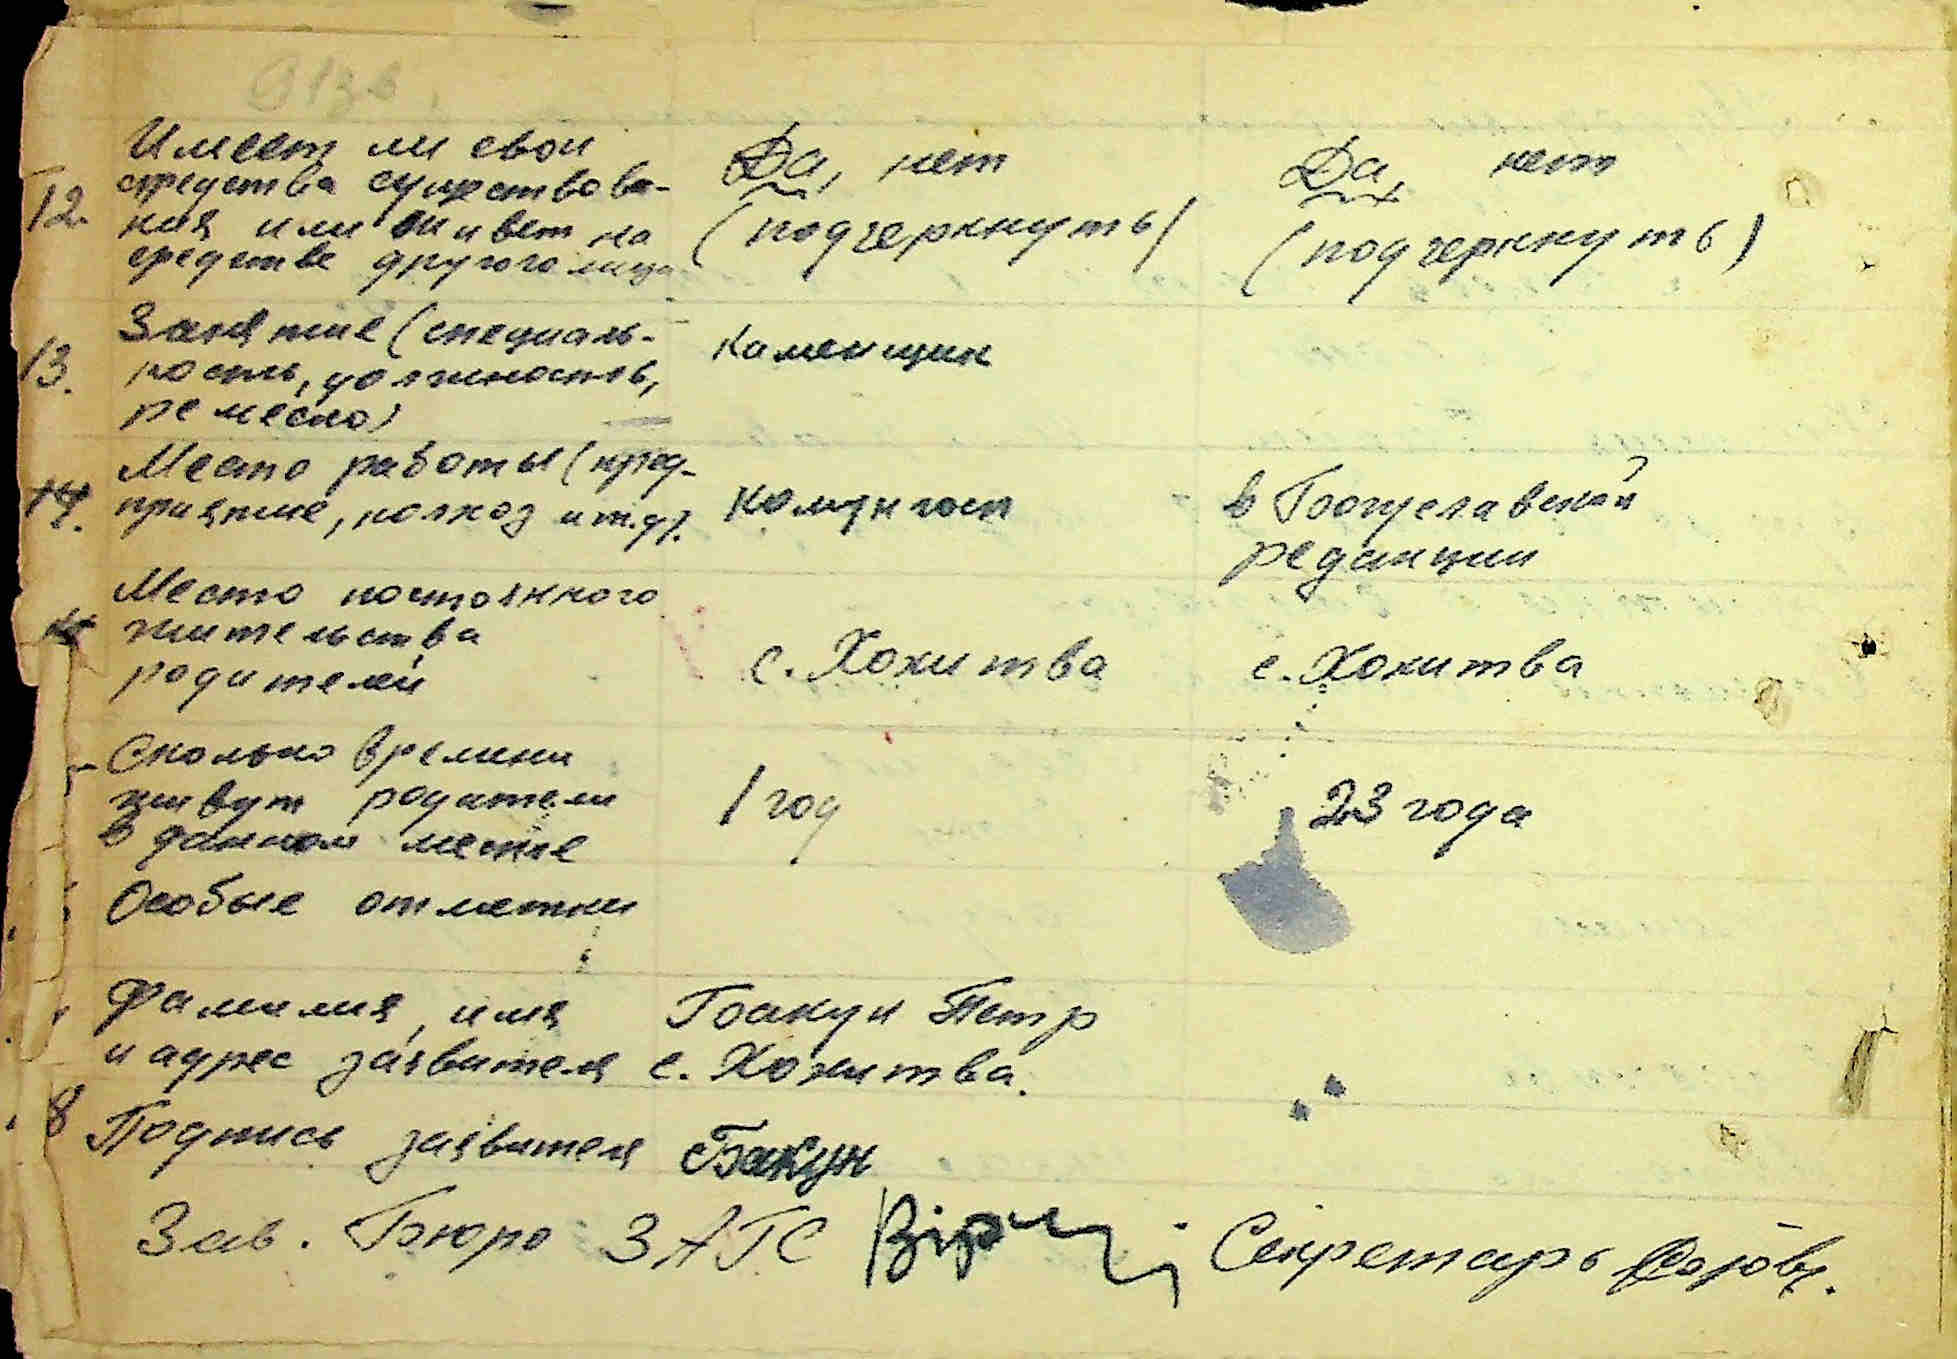 12. Имеет ли свои
средства существова-
ния или живет на
средстве другого лица
Да, нет
(подчеркнуть)
Да, нет
(подчеркнуть)
13. Занятие (специаль-
ность, должность,
ремесло)
Каменщик
14. Место работы (пред-
приятие, колхоз и т.д).
Комунгосп
в Богуславской
редакции
Место постоянного
жительства
родителей
с. Хохитва
с. Хохитва
Сколько времени
живут родители
в данном месте
1 год
23 года
Особые отметки
Фамилия, имя
и адрес заявителя
Бакун Петр
с. Хохитва.
8 Подпись заявителя Бакун
Зав. Бюро ЗАГС Секретарь